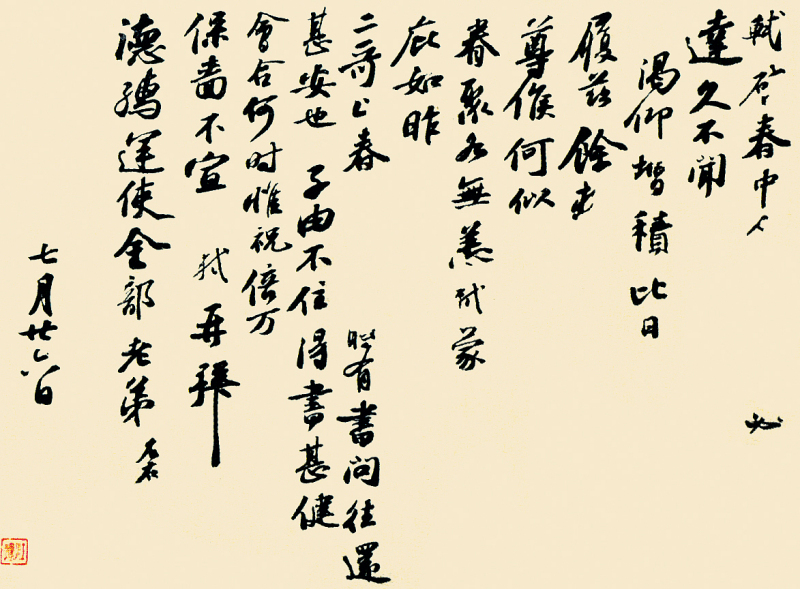 軾啓春中 必
達久不聞
渴仰增積比日
履茲餘
尊候何似
眷聚各無恙軾蒙
庇如昨
二哥上春 時有書問往還
甚安也 子由不住得書甚健
會合何時惟祝倍万
保嗇不宣 軾再拜
德孺運使金部老弟
七月廿六日